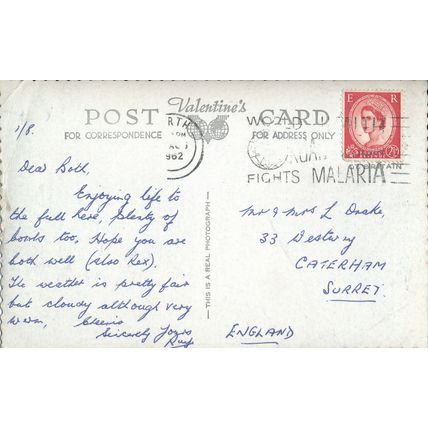 Valentine's
POST CARD
FOR CORRESPONDENCE
FOR ADDRESS ONLY
1962
WORLD UNITED
AGAINST
FIGHTS MALARIA
E R
1/8.
Dear Both,
Enjoying life to
the full here, plenty of
bowls too, Hope you are
both well (also Rex).
The weather is pretty fair
but cloudy although very
warm, Cheerio
Sincerely Yours
— THIS IS A REAL PHOTOGRAPH —
Mr & Mrs L Drake,
33 Westway
CATERHAM
SURREY.
ENGLAND